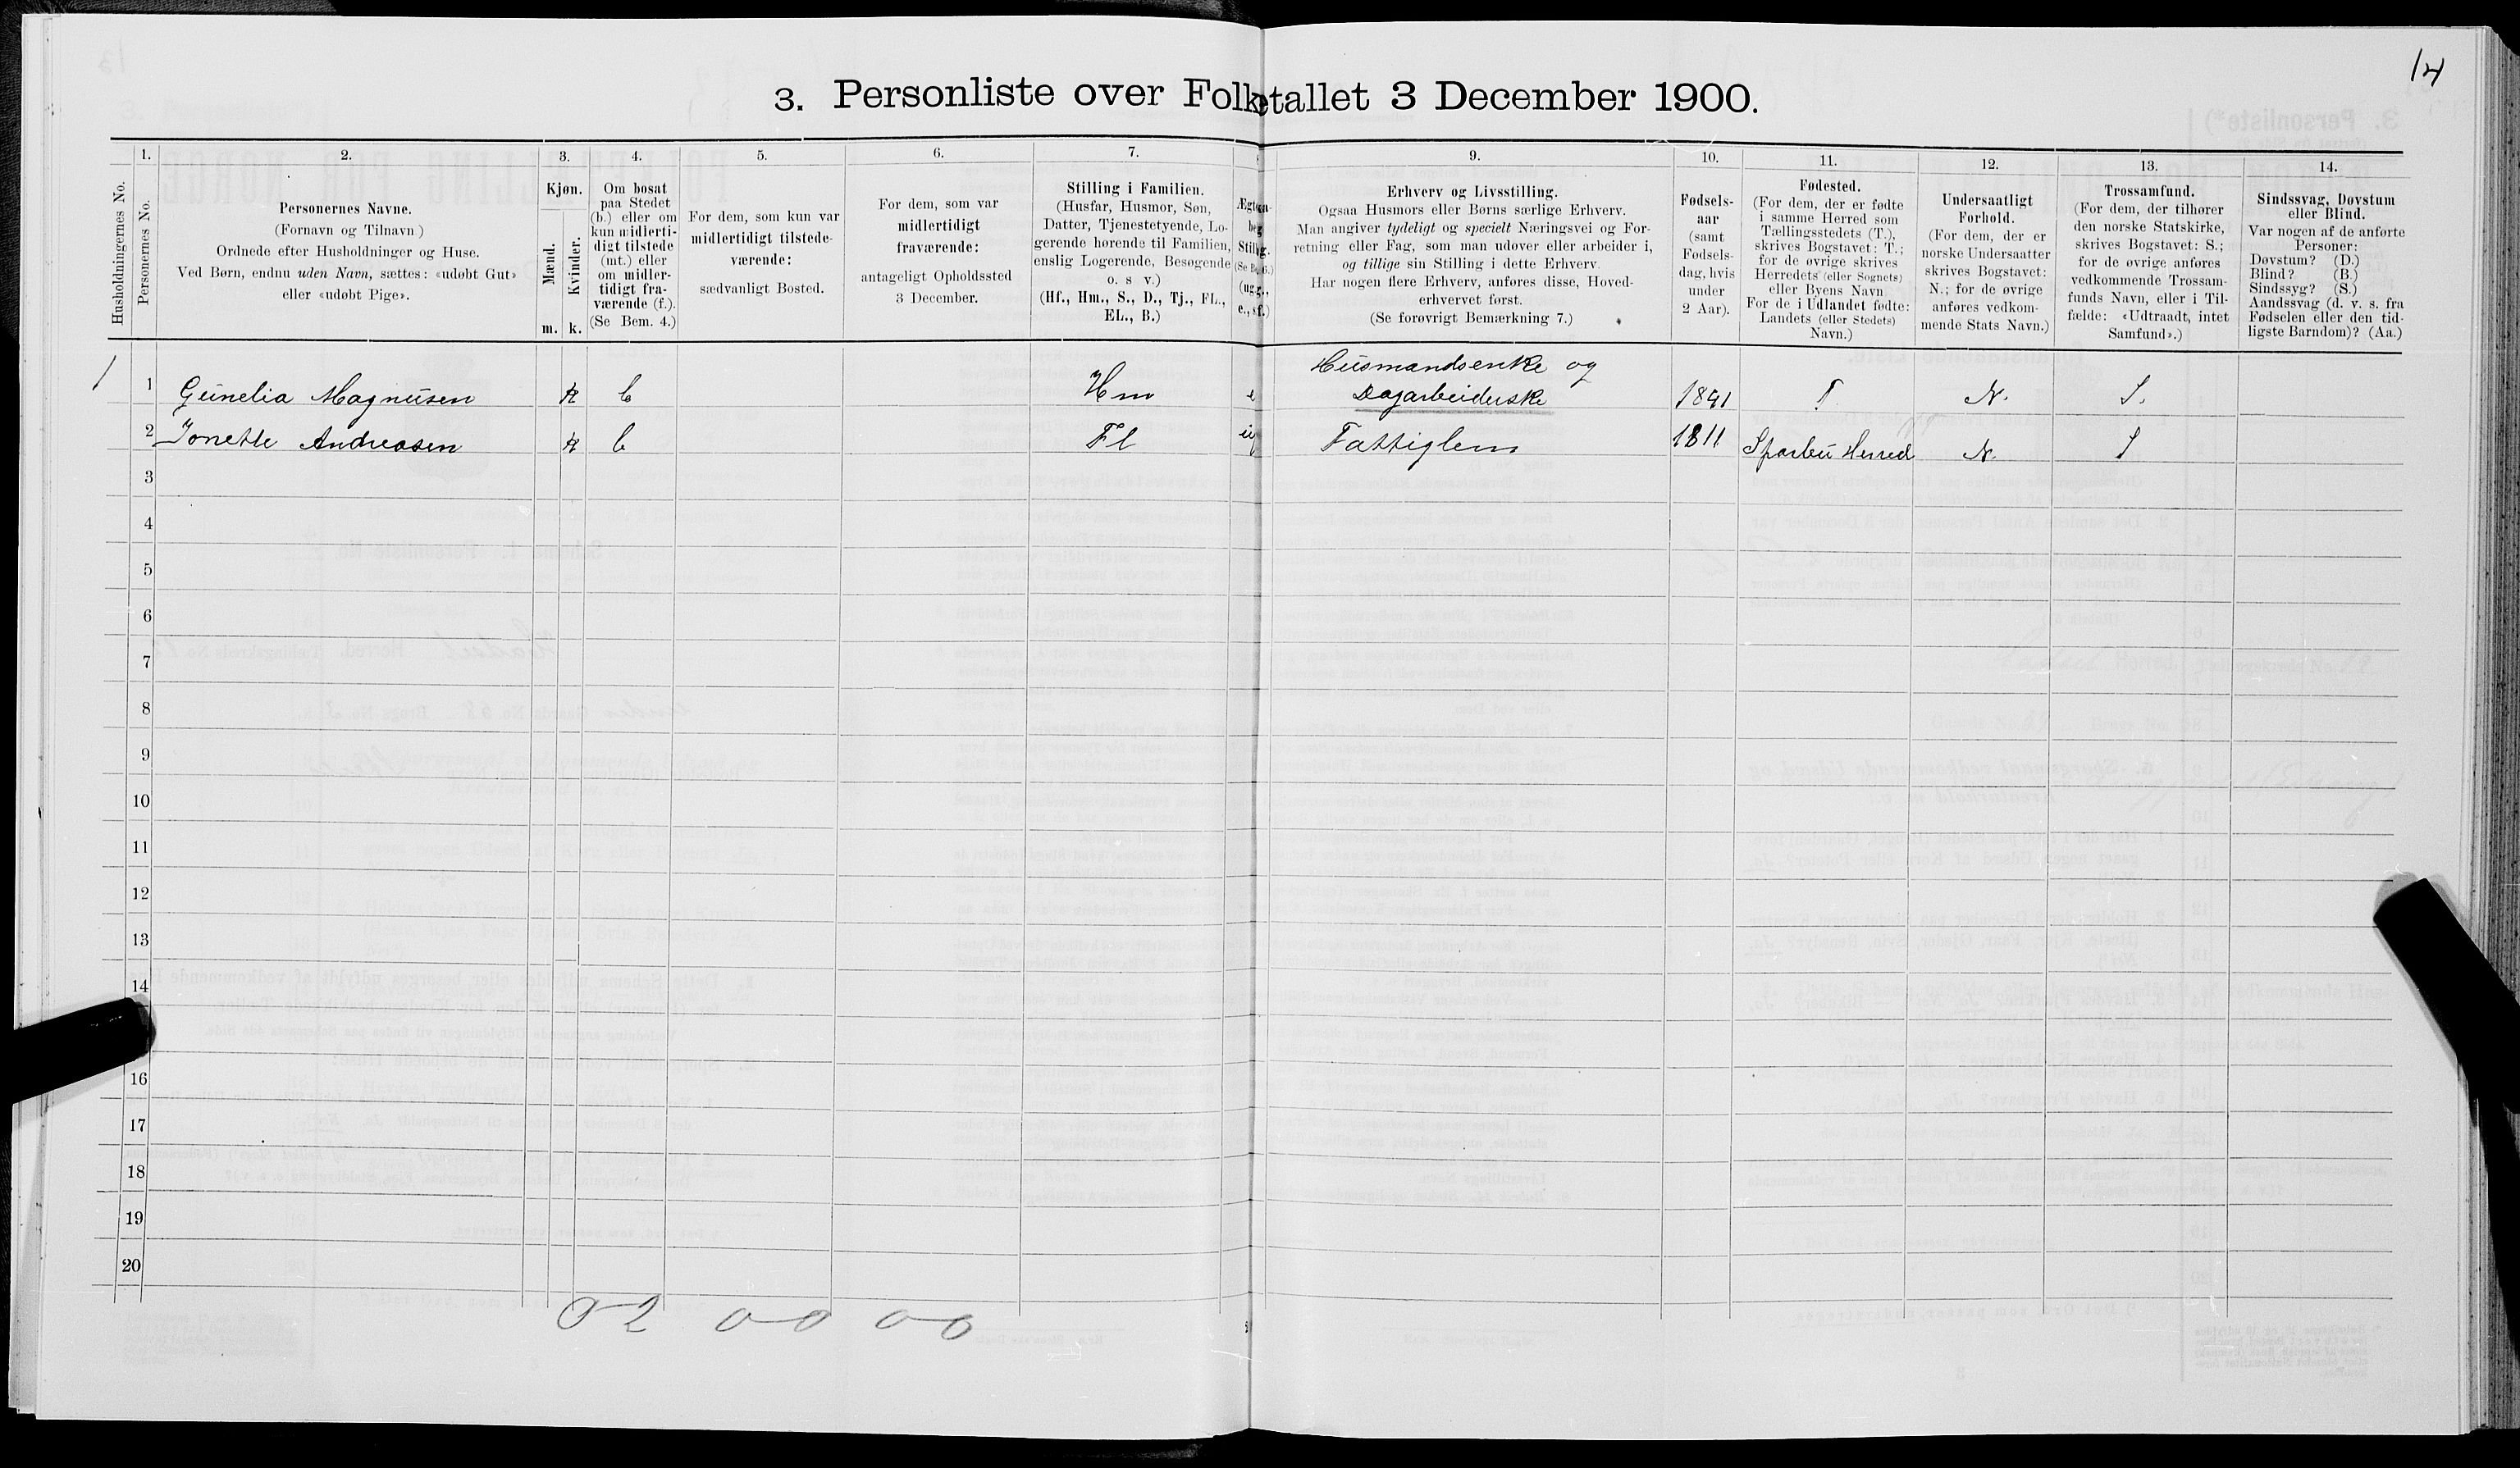 14
3. Personliste over Folketallet 3 December 1900.
1. 2. 3. 4. 5. 6. 7. 9. 10. 11. 12. 13. 14.
Husholdningernes No.
Personernes No.
Personernes Navne.
(Fornavn og Tilnavn.)
Ordnede efter Husholdninger og Huse.
Ved Børn, endnu uden Navn, sættes: «udøbt Gut»
eller «udøbt Pige».
Kjøn.
Mænd.
Kvinder.
m. k.
Om bosat
paa Stedet
(b.) eller om
kun midlerti-
digt tilstede
(mt.) eller
om midler-
tidigt fra-
værende (f.).
(Se Bem. 4.)
For dem, som kun var
midlertidigt tilstede-
værende:
sædvanligt Bosted.
For dem, som var
midlertidigt
fraværende:
antageligt Opholdssted
3 December.
Stilling i Familien.
(Husfar, Husmor, Søn,
Datter, Tjenestetyende, Lo-
gerende hørende til Familien,
enslig Logerende, Besøgende
o. s v.)
(Hf., Hm., S., D., Tj., FL.,
EL., B.)
Erhverv og Livsstilling.
Ogsaa Husmors eller Børns særlige Erhverv.
Man angiver tydeligt og specielt Næringsvei og For-
retning eller Fag, som man udøver eller arbeider i,
og tillige sin Stilling i dette Erhverv.
Har nogen flere Erhverv, anføres disse, Hoved-
erhvervet først.
(Se forøvrigt Bemærkning 7.)
Fødsels-
aar
(samt
Fødsels-
dag, hvis
under
2 Aar).
Fødested.
(For dem, der er fødte
i samme Herred som
Tællingsstedets (T.),
skrives Bogstavet: T.;
for de øvrige skrives
Herredets (eller Sognets)
eller Byens Navn
For de i Udlandet fødte:
Landets (eller Stedets)
Navn.)
Undersaatligt
Forhold.
(For dem, der er
norske Undersaatter
skrives Bogstavet:
N.; for de øvrige
anføres vedkom-
mende Stats Navn.)
Trossamfund.
(For dem, der tilhører
den norske Statskirke,
skrives Bogstavet: S.;
for de øvrige anføres
vedkommende Trossam-
funds Navn, eller i Til-
fælde: «Udtraadt, intet
Samfund».)
Sindssvag, Døvstum
eller Blind.
Var nogen af de anførte
Personer:
Døvstum? (D.)
Blind? (B.)
Sindssyg? (S.)
Aandssvag (d. v. s. fra
Fødselen eller den tid-
ligste Barndom)? (Aa.)
1 1 Gunelia Magnusen k b Hm e Husmandsenke og
Dagarbeiderske T. N. S.
2 Jonette Andreasen k b Fl ug Fattiglem 1811 Sparbu Herred N. S
3
4
5
6
7
8
9
10
11
12
13
14
16
17
18
19
20
0 2 0 0 0 0